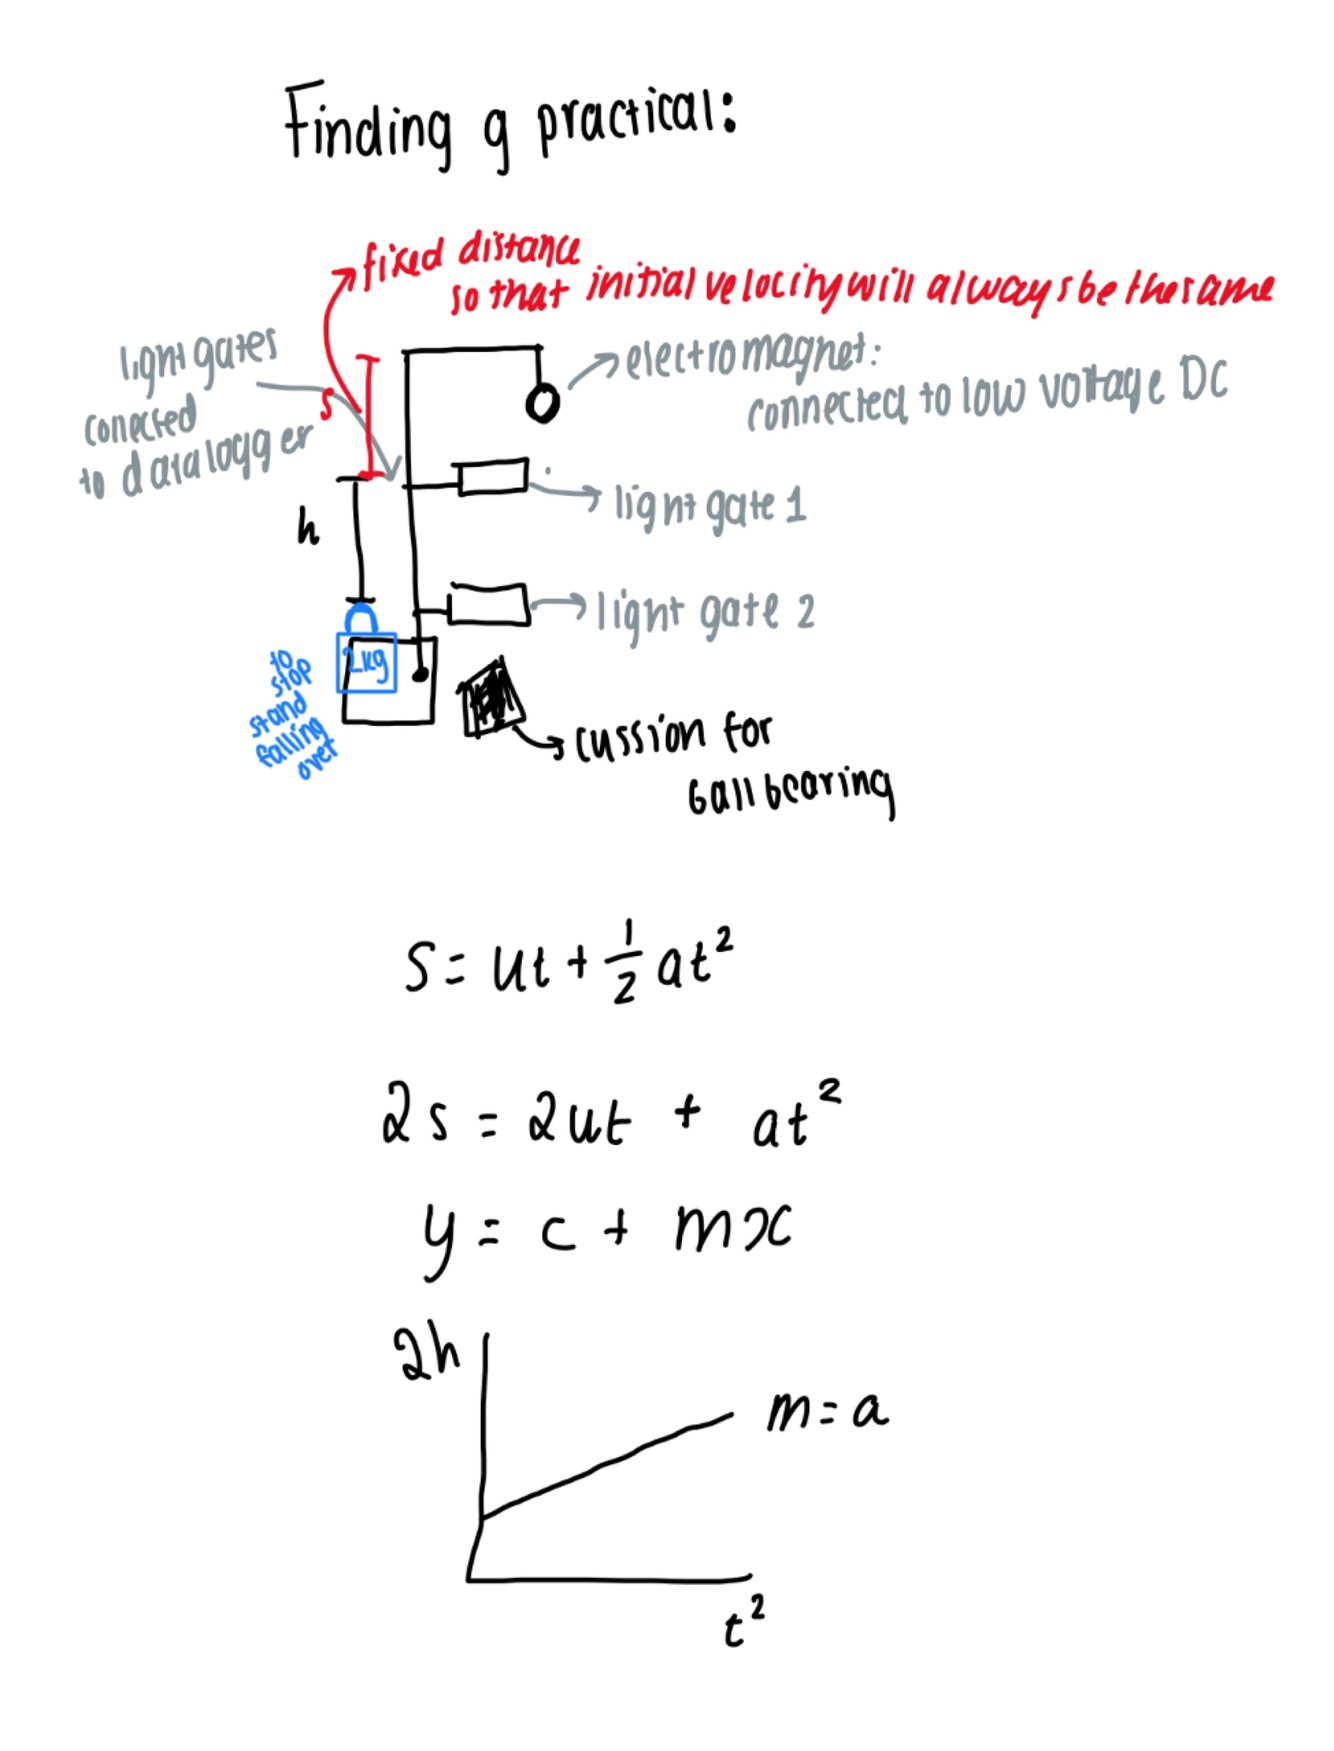 Finding g practical:
fixed distance
so that initial velocity will always be the same
light gates
conected
to datalogger
s
electromagnet:
connected to low voltage DC
light gate 1
h
light gate 2
2kg
to
stop
stand
falling
over
cussion for
ball bearing
s = ut + 1/2 at²
2s = 2ut + at²
y = c + mx
2h
m = a
t²